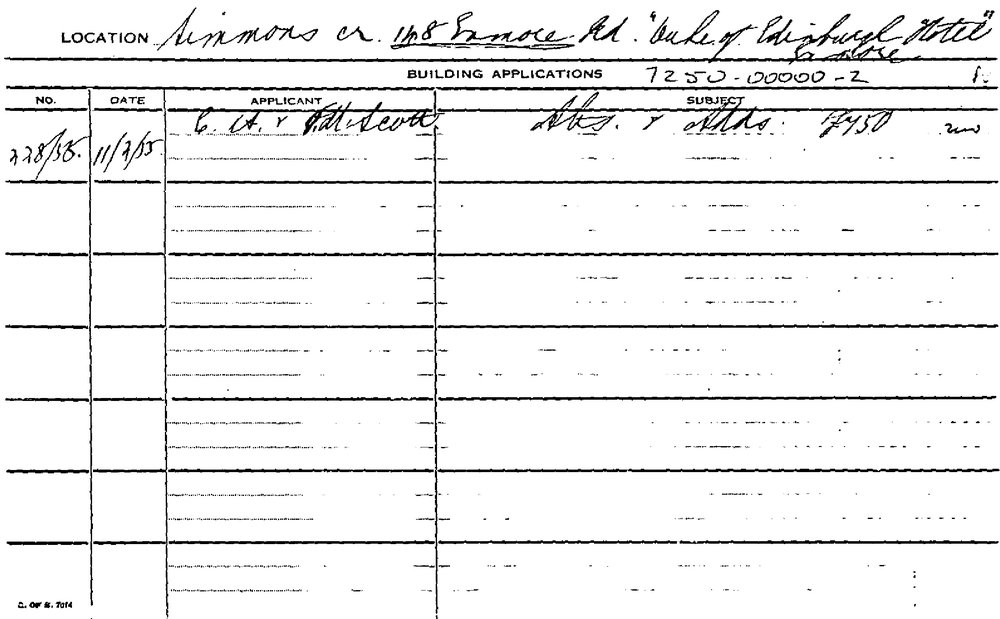 LOCATION Simmons cr. 148 Enmore Rd. "Duke of Edinburgh Hotel"
Enmore
BUILDING APPLICATIONS 7250-00000-2
NO. DATE APPLICANT SUBJECT
C. A. & Scott. Alts. & Adds. £750
228/55. 11/2/55